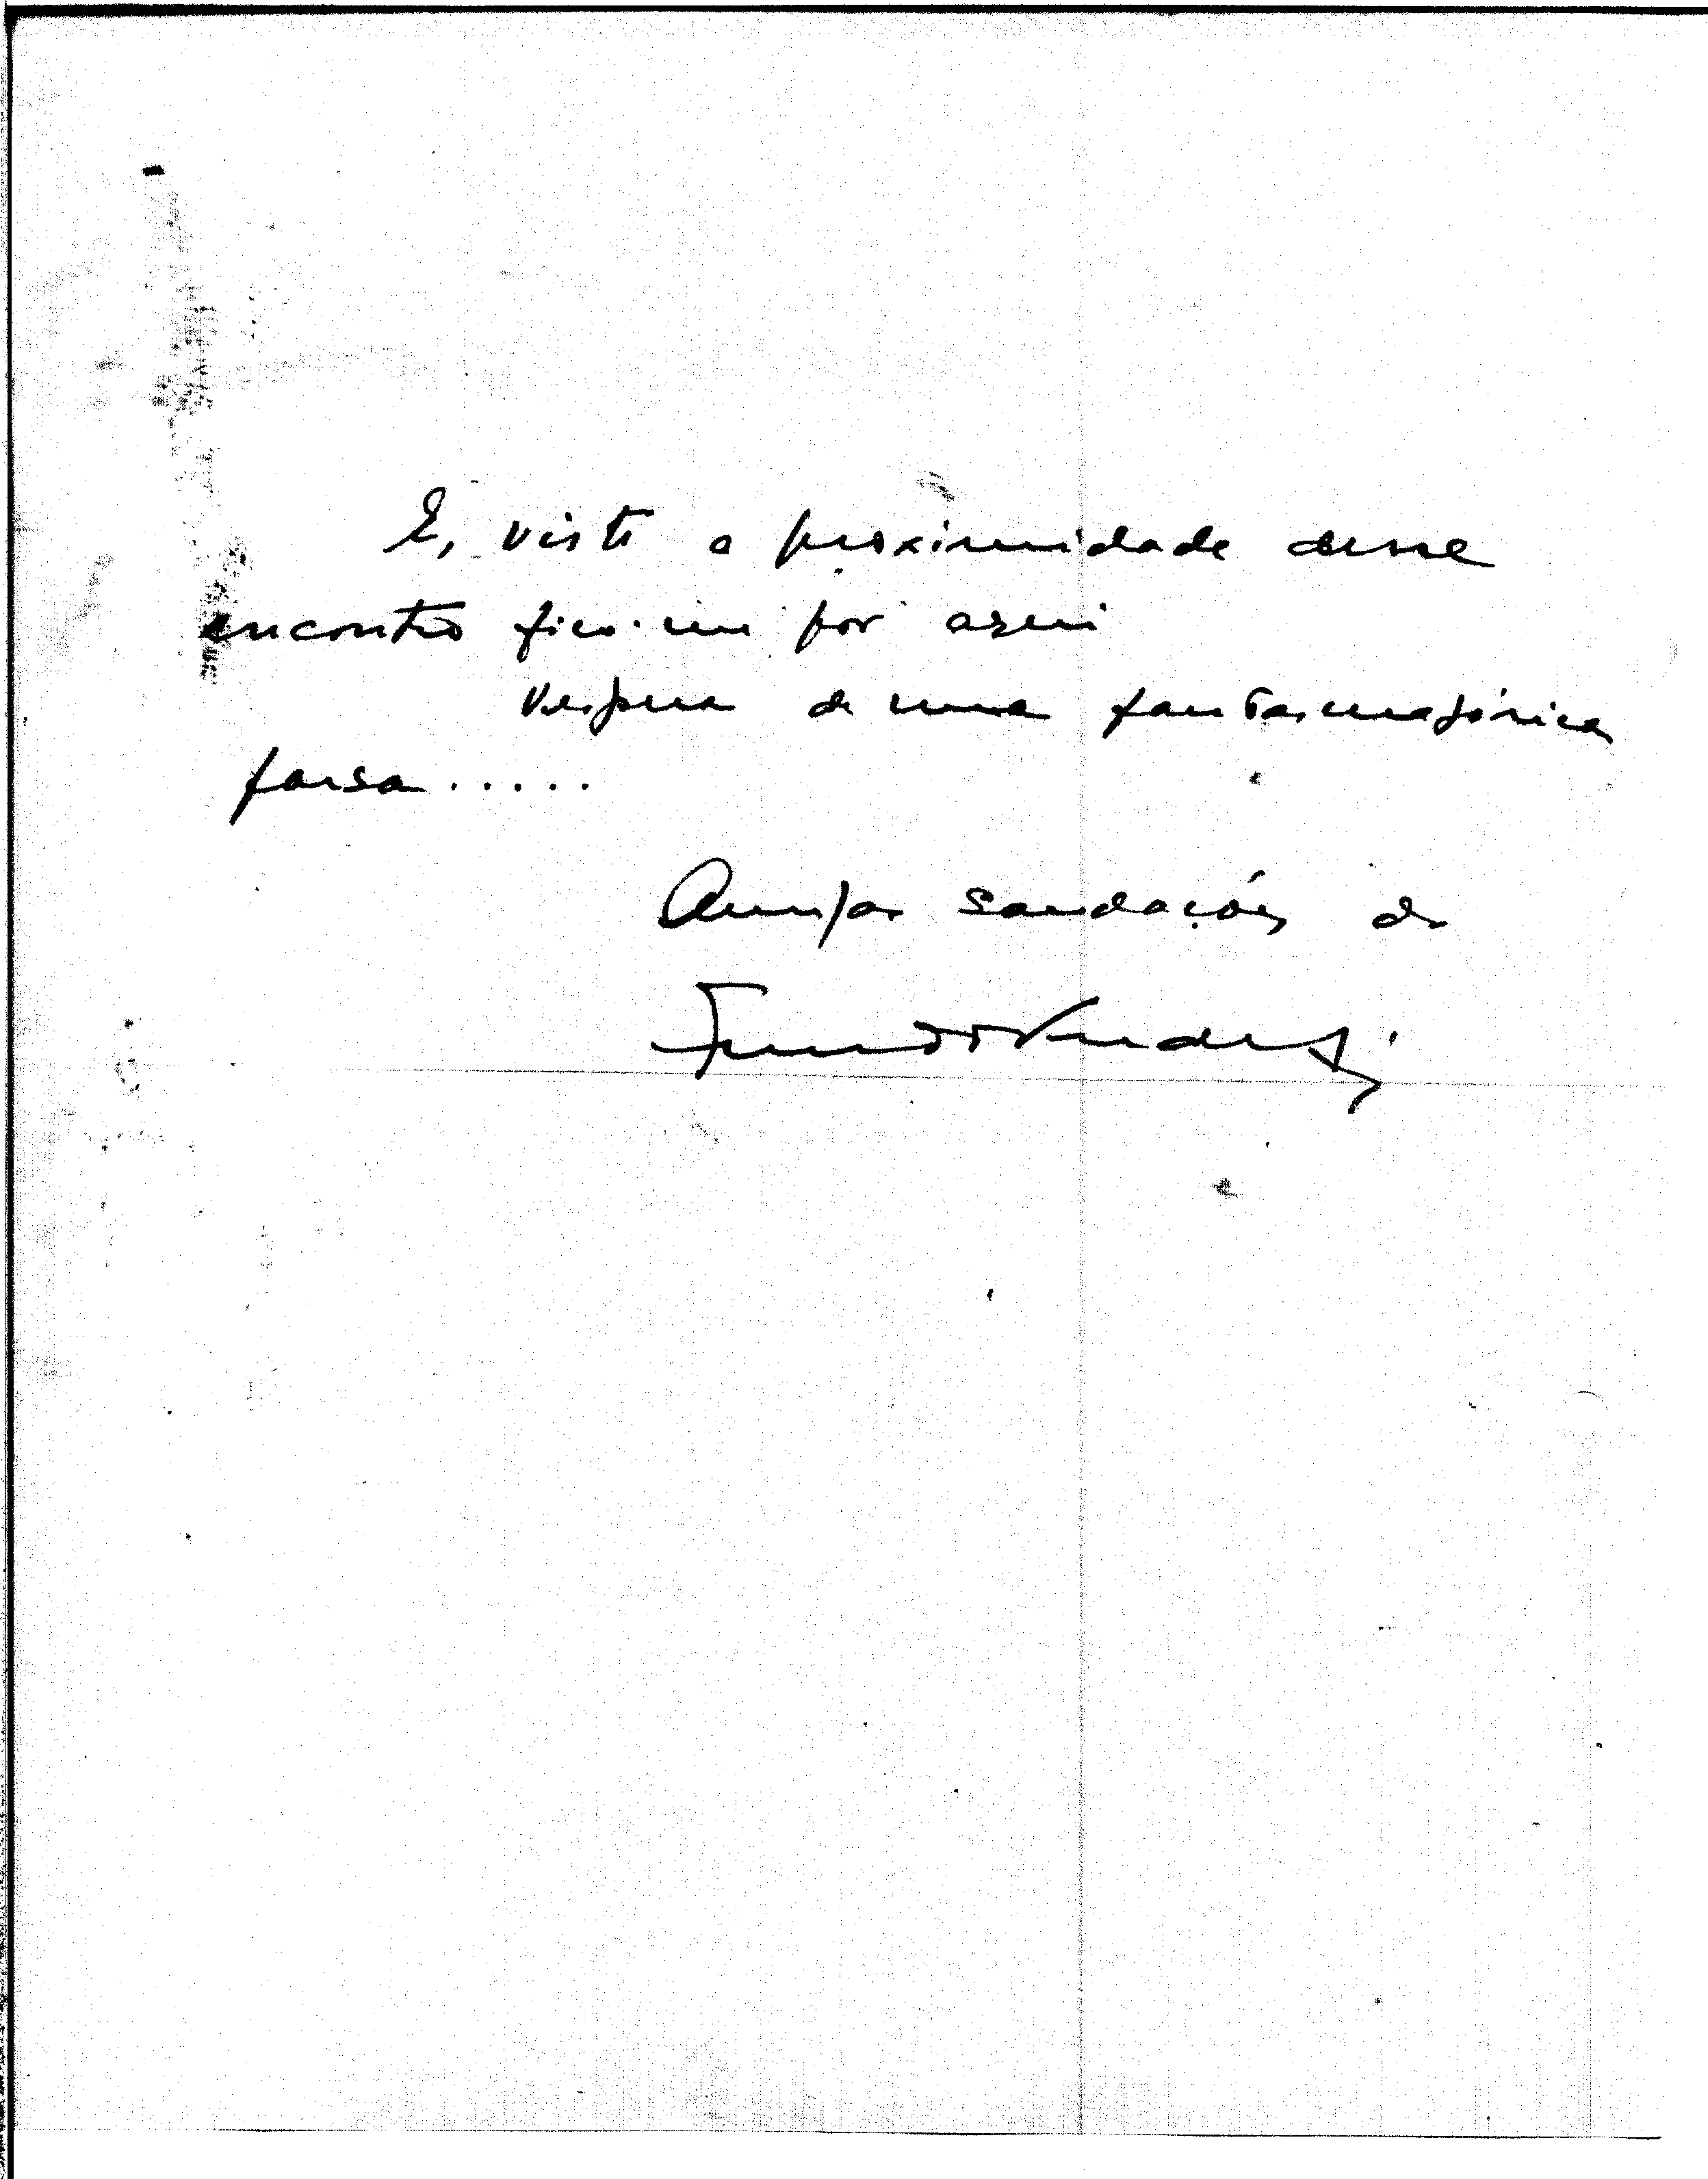 E, visto a proximidade desse
encontro fico-me por aqui
Vespera de uma fantasmagórica
farsa.....
Amigas saudações de